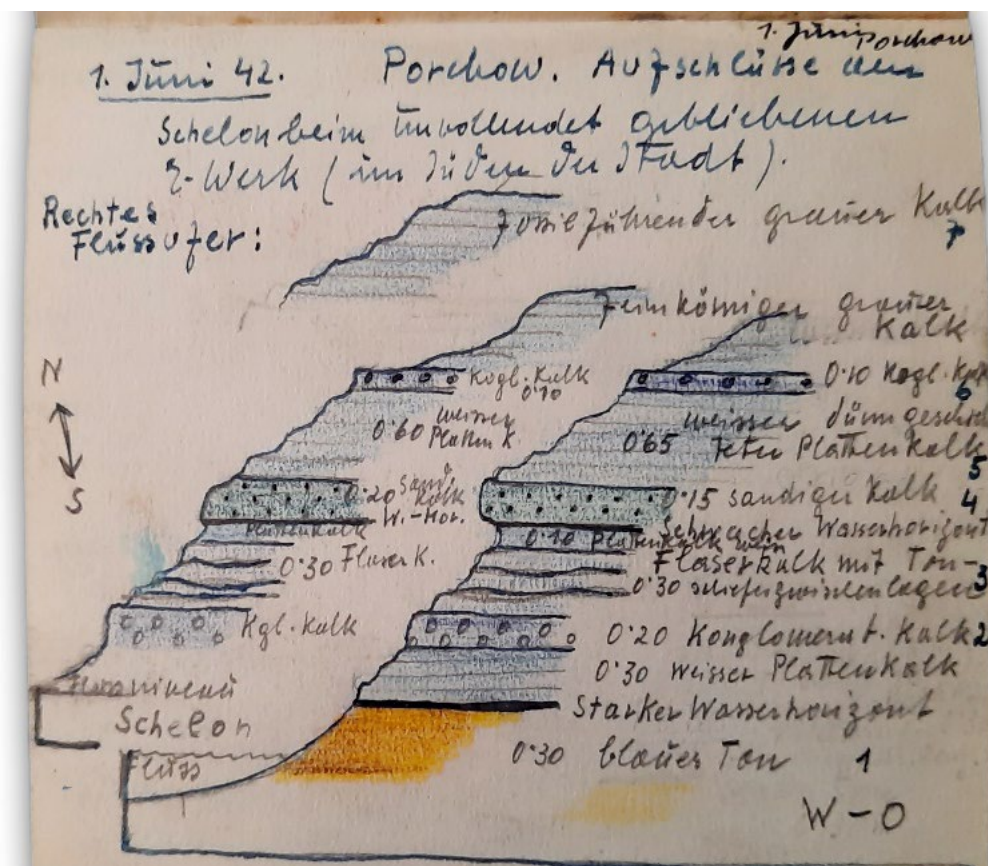 1. Juni Porchow
1. Juni 42. Porchow. Aufschlüsse am
Schelon beim unvollendet gebliebenen
E-Werk (im Süden der Stadt).
Rechtes
Flussufer:
Fossilführender grauer Kalk
7
Feinkörniger grauer
Kalk
N
S
Kogl. Kalk
0'10
weisser
0'60 Platten K.
0'20 Sand.
Kalk
W.-Hor.
Plattenkalk
0'30 Flaser K.
Kgl. Kalk
0'10 Kogl. Kalk
6
weisser dünngeschich
0'65 teter Plattenkalk
5
0'15 sandiger Kalk 4
Schwacher Wasserhorizont
0'10 Plattenkalk
Flaserkalk mit Ton-
3
0'30 schieferzwischenlagen
0'20 Konglomerat. Kalk 2
0'30 weisser Plattenkalk
Starker Wasserhorizont
0'30 blauer Ton 1
Schelon
Fluss
W-O